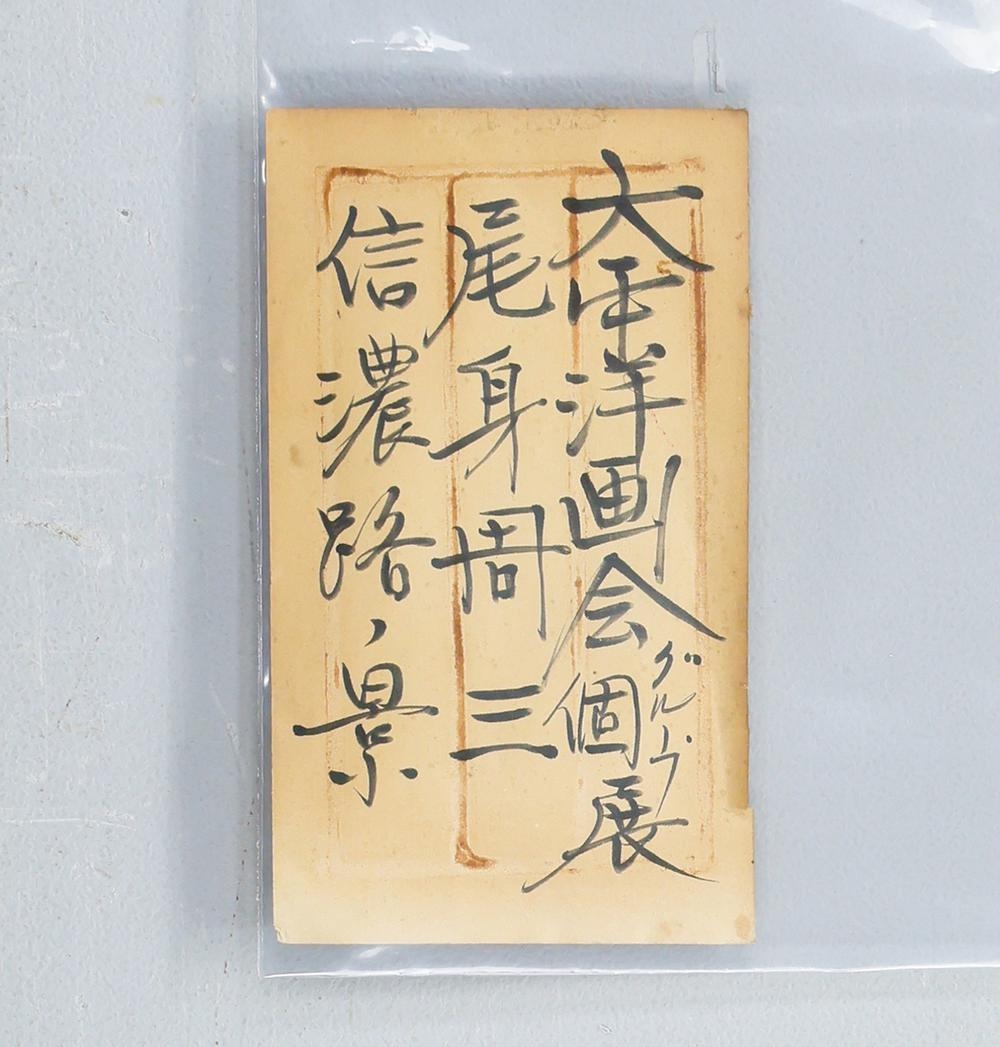 大平洋画会個展
グループ
尾身周三
信濃路ノ景